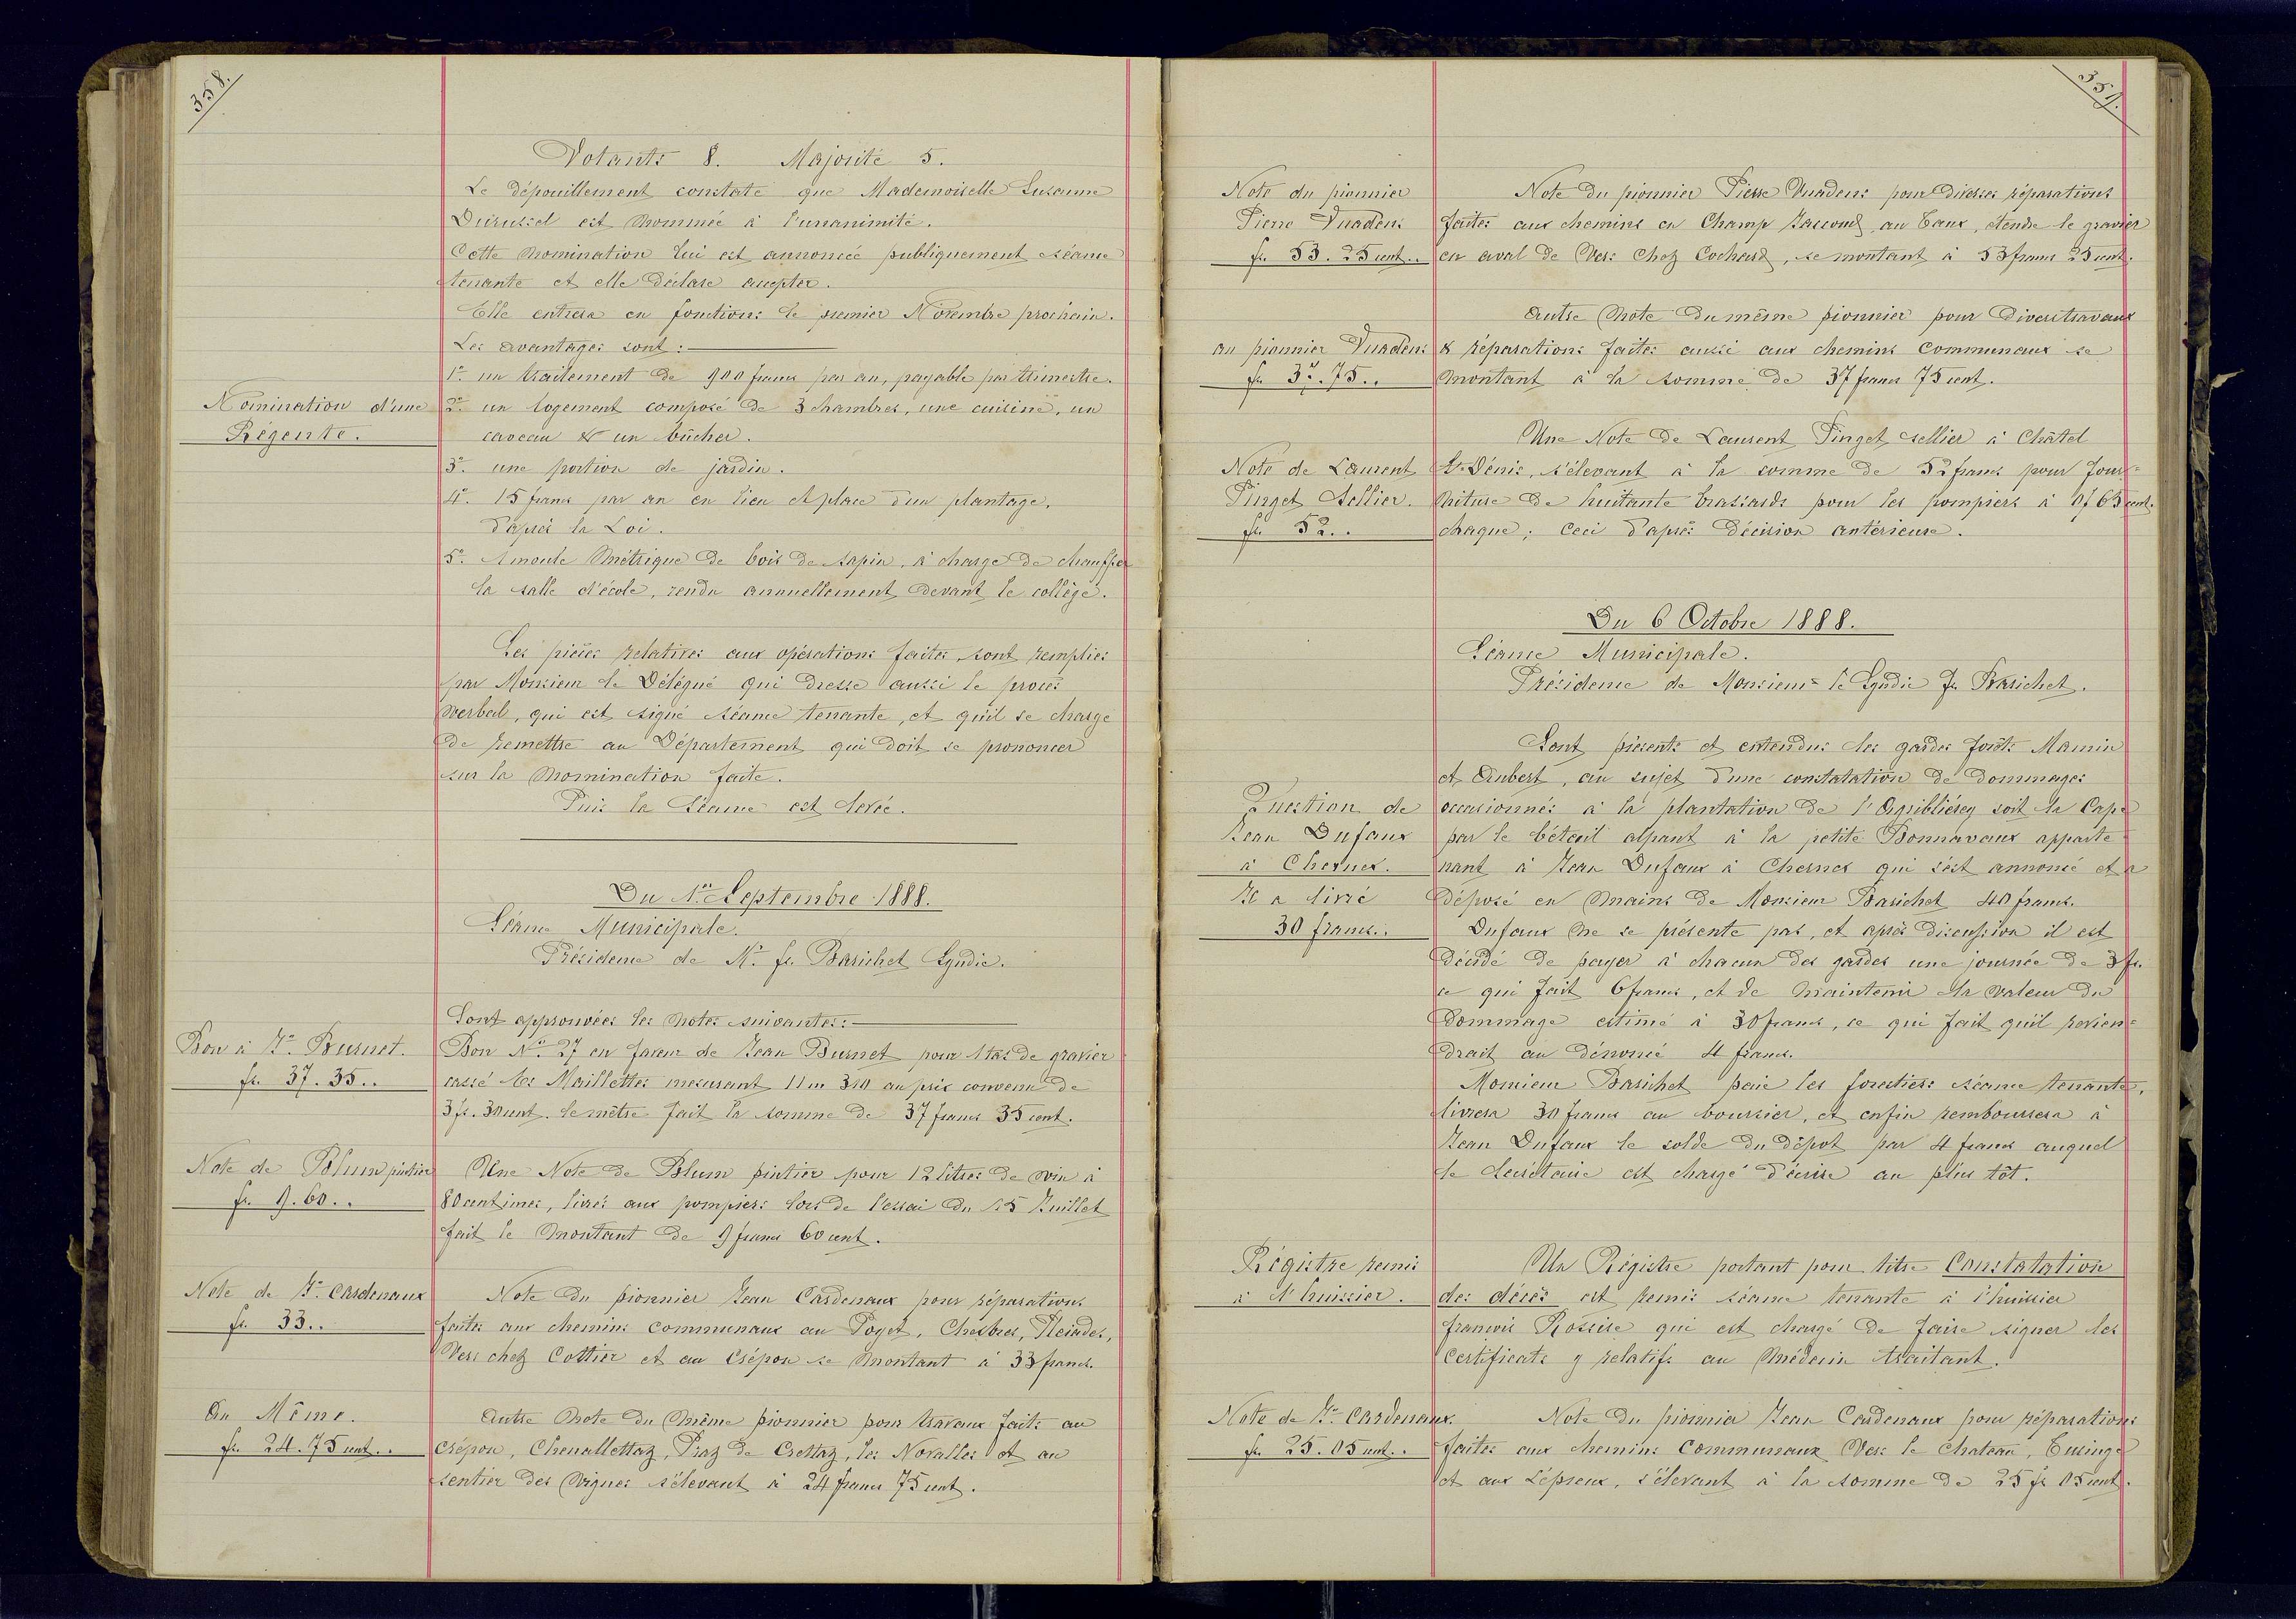 358.
Votants 8. Majorité 5.
Le dépouillement constate que Mademoiselle Susanne
Durussel est nommée à l'unanimité.
Cette nomination lui est annoncée publiquement séance
tenante et elle déclare accepter.
Elle entrera en fonctions le premier Novembre prochain.
Les avantages sont :
1° un traitement de 900 francs par an, payable par trimestre.
Nomination d'une
Régente.
2° un logement composé de 3 chambres, une cuisine, un
caveau & un bûcher.
3° une portion de jardin.
4° 15 francs par an en lieu et place d'un plantage,
d'après la Loi.
5° 1 moule métrique de bois de sapin, à charge de chauffer
la salle d'école, rendu annuellement devant le collège.
Les pièces relatives aux opérations faites sont remplies
par Monsieur le Délégué qui dresse aussi le procès
verbal, qui est signé séance tenante, et qu'il se charge
de remettre au Département qui doit se prononcer
sur la nomination faite.
Puis la Séance est levée.
Du 1er Septembre 1888.
Séance Municipale.
Présidence de Mr. fs. Barichet Syndic.
Sont approuvées les notes suivantes :
Bon à Jn. Burnet.
fr. 37.35..
Bon No. 27 en faveur de Jean Burnet pour 1 tas de gravier
cassé les Maillettes mesurant 11 m 310 au prix convenu de
3 fr. 30 cent. le mètre fait la somme de 37 francs 35 cent.
Note de Blum pintier
fr. 9.60..
Une Note de Blum pintier pour 12 litres de vin à
80 centimes, livrés aux pompiers lors de l'essai du 15 Juillet
fait le montant de 9 francs 60 cent.
Note de Jn. Cardenaux
fr. 33..
Note du pionnier Jean Cardenaux pour réparations
faites aux chemins communaux au Poyet, Chexbres, Pleiades,
Vers chez Cottier et au Crépon se montant à 33 francs.
Au Même.
fr. 24.75 cent..
Autre note du même pionnier pour travaux faits au
Crépon, Chenallettaz, Praz de Crettaz, les Novalles et au
sentier des Vignes s'élevant à 24 francs 75 cent.
359.
Note du pionnier
Pierre Vuadens
fr. 53.25 cent..
Note du pionnier Pierre Vuadens pour diverses réparations
faites aux chemins en Champ Jaccoud, au Caux, étendre le gravier
en aval de Vers Chez Cochard, se montant à 53 francs 25 cent.
au pionnier Vuadens
fr. 37.75..
Autre note du même pionnier pour divers travaux
& réparations faites aussi aux chemins communaux se
montant à la somme de 37 francs 75 cent.
Note de Laurent
Pinget Sellier.
fr. 52..
Une Note de Laurent Pinget sellier à Châtel
St. Dénis, s'élevant à la somme de 52 francs pour four=
niture de huitante brassards pour les pompiers à 0 f 65 cent.
chaque ; ceci d'après décision antérieure.
Du 6 Octobre 1888.
Séance Municipale.
Présidence de Monsieur le Syndic fs Barichet.
Sont présents et entendus les gardes forêts Mamin
et Aubert, au sujet d'une constatation de dommages
Question de
Jean Dufaux
à Chernex.
Il a livré
30 francs..
occasionnés à la plantation de l' soit la Cape
par le bétail alpant à la petite Bonnavaux apparte=
nant à Jean Dufaux à Chernex qui s'est annoncé et a
déposé en mains de Monsieur Barichet 40 francs.
Dufaux ne se présente pas, et après discussion il est
décidé de payer à chacun des gardes une journée de 3 fr.
ce qui fait 6 francs, et de maintenir la valeur du
dommage estimé à 30 francs, ce qui fait qu'il revien=
drait au dénoncé 4 francs.
Monsieur Barichet paie les forestiers séance tenante,
livrera 30 francs au boursier, et enfin remboursera à
Jean Dufaux le solde du dépôt par 4 francs auquel
le secrétaire est chargé d'écrire au plus tôt.
Régistre remis
à l'huissier.
Un Régistre portant pour titre Constatation
des décès est remis séance tenante à l'huissier
françois Rossire qui est chargé de faire signer les
certificats y relatifs au médecin traitant.
Note de Jn. Cardenaux.
fr. 25.05 cent..
Note du pionnier Jean Cardenaux pour réparations
faites aux chemins communaux Vers le Chateau, Cusinge
et aux Lépreux, s'élevant à la somme de 25 fr 05 cent.